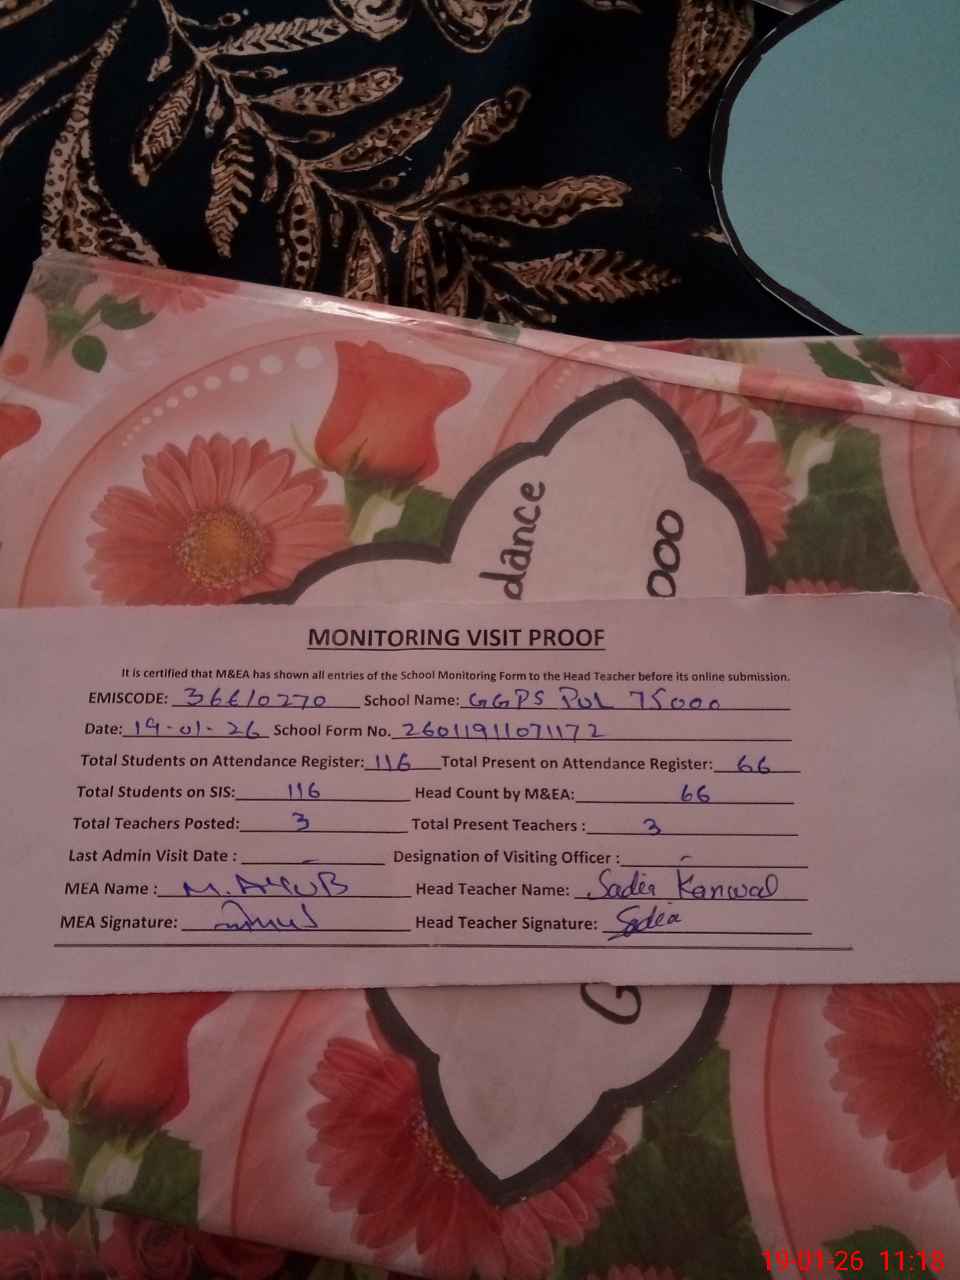 dance
000
MONITORING VISIT PROOF
It is certified that M&EA has shown all entries of the School Monitoring Form to the Head Teacher before its online submission.
EMISCODE: 36610270 School Name: GGPS PUL 75000
Date: 19-01-26 School Form No. 26011911071172
Total Students on Attendance Register: 116 Total Present on Attendance Register: 66
Total Students on SIS: 116 Head Count by M&EA: 66
Total Teachers Posted: 3 Total Present Teachers : 3
Last Admin Visit Date : - Designation of Visiting Officer : -
MEA Name : M. AYUB Head Teacher Name: Sadia Kanwal
MEA Signature: Head Teacher Signature: Sadia
G
19-01-26 11:18